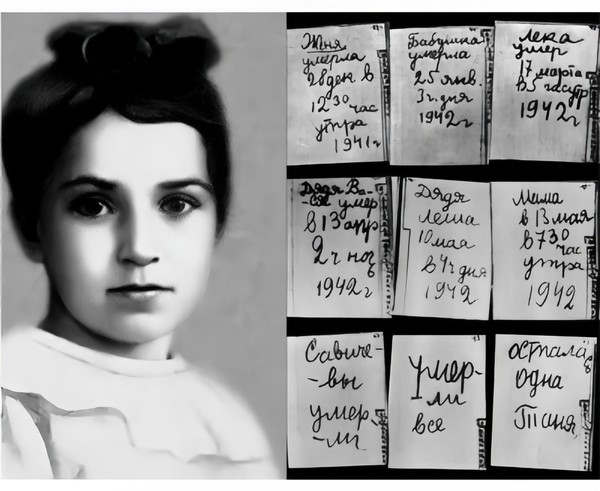 Женя
умерла
28 дек в
12 30 час
утра
1941 г
Бабушка
умерла
25 янв.
3 ч. дня
1942 г
Лека
умер
17 марта
в 5 час утр
1942 г
Дядя Ва-
ся умер
в 13 апр
2 ч ноч
1942 г
Дядя
Леша
10 мая
в 4 ч дня
1942
Мама
в 13 мая
в 7 30
час
утра
1942
Савиче-
-вы
умер
-ли
умер-
ли
все
осталась
одна
Таня